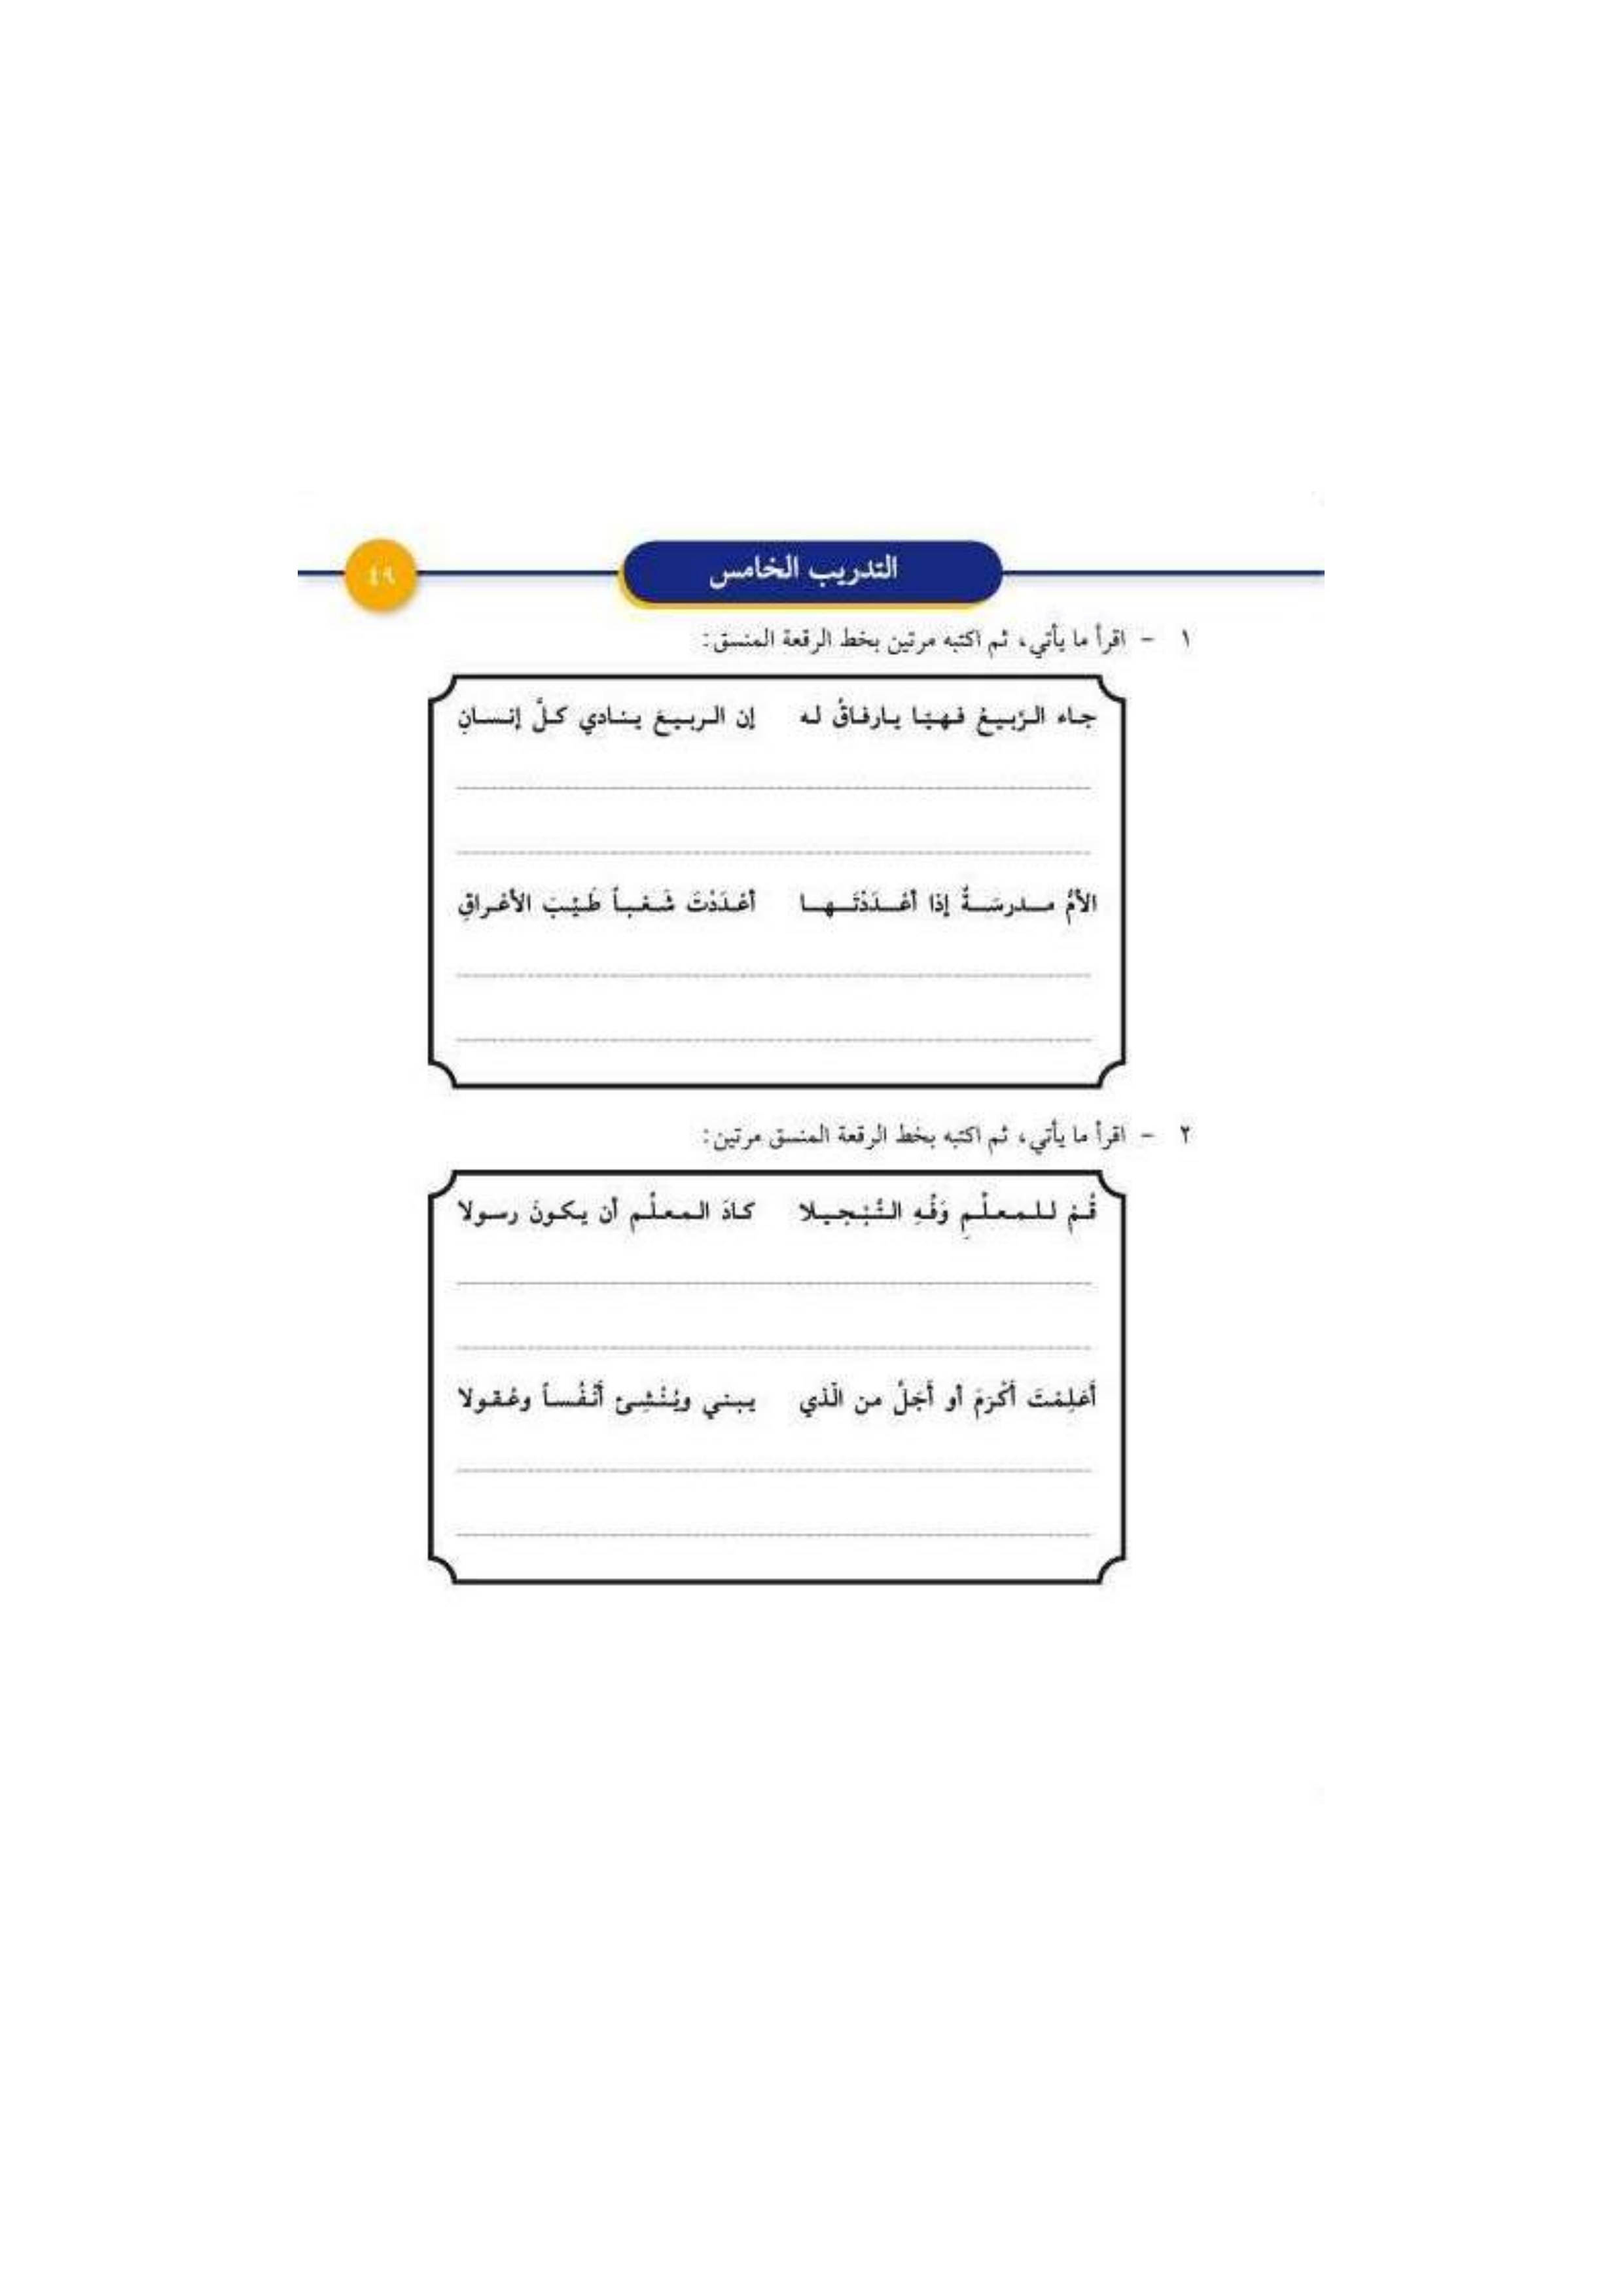 التدريب الخامس
٤٩
١ - اقرأ ما يأتي، ثم اكتبه مرتين بخط الرقعة المنسق:
جاء الرَّبيعُ فهيّا يارفاقُ له إن الربيعَ ينادي كلَّ إنسانِ
الأمُّ مدرسَةٌ إذا أعْدَدْتَها أعْدَدْتَ شَعْباً طَيِّبَ الأعْراقِ
٢ - اقرأ ما يأتي، ثم اكتبه بخط الرقعة المنسق مرتين:
قُمْ للمعلّمِ وَفِّهِ التَّبْجيلا كادَ المعلّم أن يكونَ رسولا
أَعَلِمْتَ أَكْرَمَ أو أَجَلَّ من الّذي يبني ويُنْشِئ أَنْفُساً وعُقولا